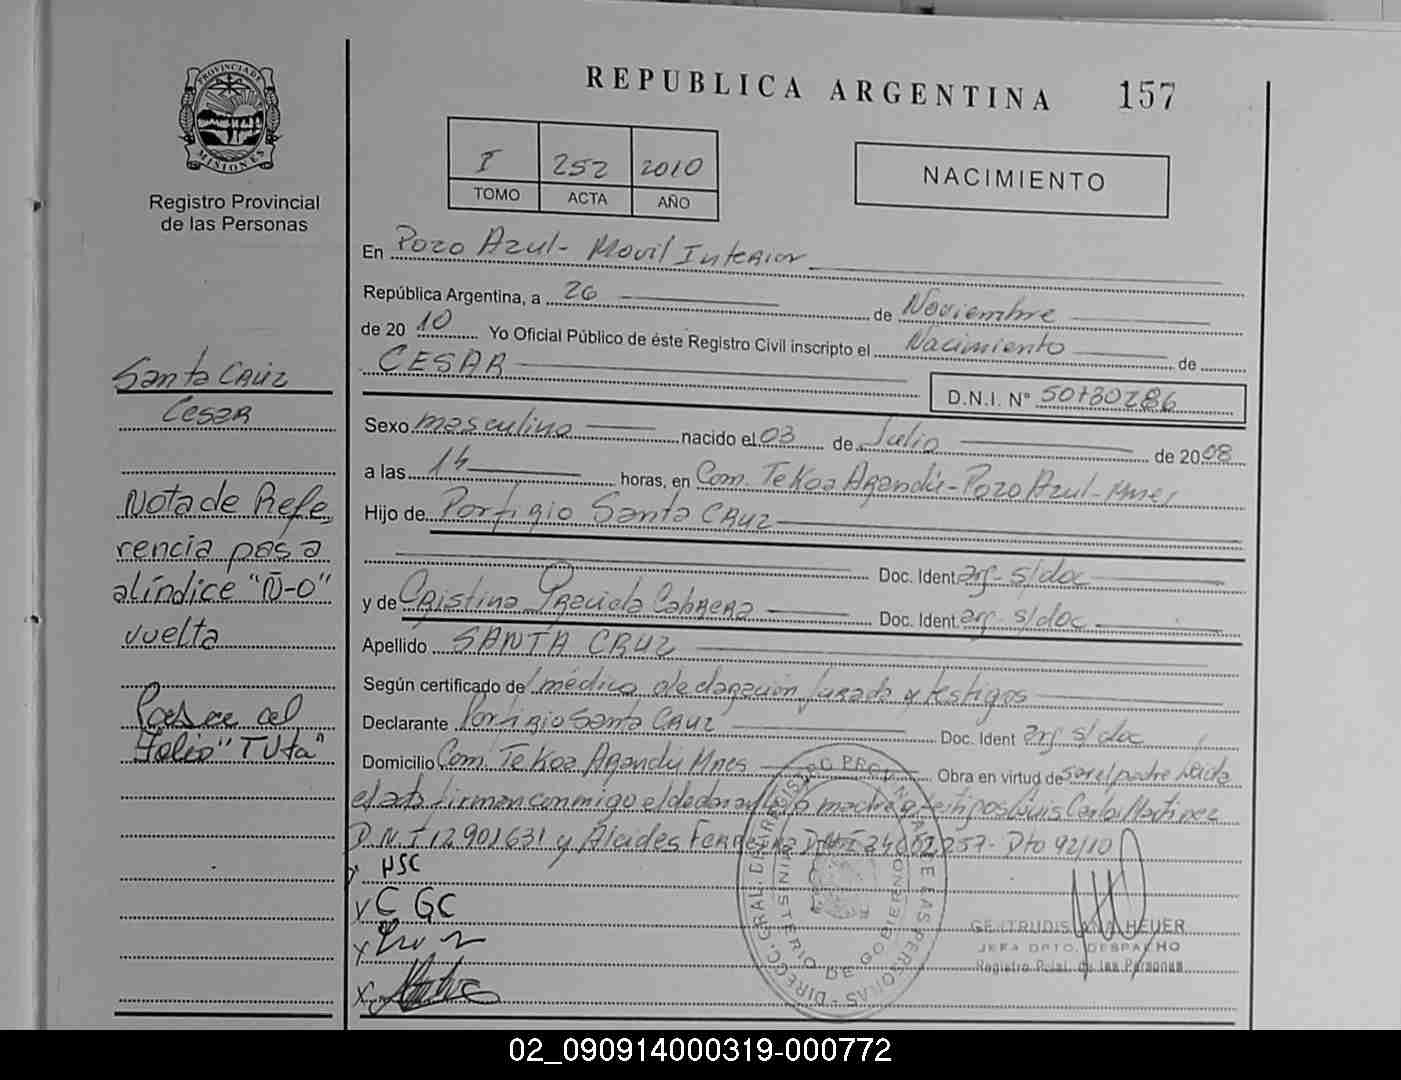 PROVINCIA DE
MISIONES
Registro Provincial
de las Personas
Santa Cruz
Cesar
Nota de Refe
rencia pasa
al índice "Ñ-O"
vuelta
Pase al
folio "TUta"
REPUBLICA ARGENTINA 157
I 252 2010
TOMO ACTA AÑO
NACIMIENTO
En Pozo Azul- Movil Interior
República Argentina, a 26 de Noviembre
de 20 10 Yo Oficial Público de éste Registro Civil inscripto el Nacimiento de
CESAR D.N.I. N° 50730286
Sexo masculino nacido el 03 de Julio de 20 08
a las 14 horas, en Com. TeKoa Arandú-Pozo Azul-Mnes
Hijo de Porfirio Santa Cruz
Doc. Ident arg- s/doc
y de Cristina Graciela Cabrera Doc. Ident. arg- s/doc
Apellido SANTA CRUZ
Según certificado de médico, declaración jurada y testigos
Declarante Porfirio Santa Cruz Doc. Ident arg s/doc
Domicilio Com. TeKoa Arandú Mnes Obra en virtud de ser el padre Leida
el acta firman conmigo el declarante la madre y testigos Luis Carlos Martinez
D.N.I 12.901.631 y Alcides Ferreira Dto 92/10
x PSC
x C GC
x
x
DIRECC. GRAL. DE REGISTRO PROVINCIAL DE LAS PERSONAS
MINISTERIO DE GOBIERNO
GERTRUDIS ANA HEUER
JEFA DPTO. DESPACHO
Registro Pcial. de las Personas
02_090914000319-000772